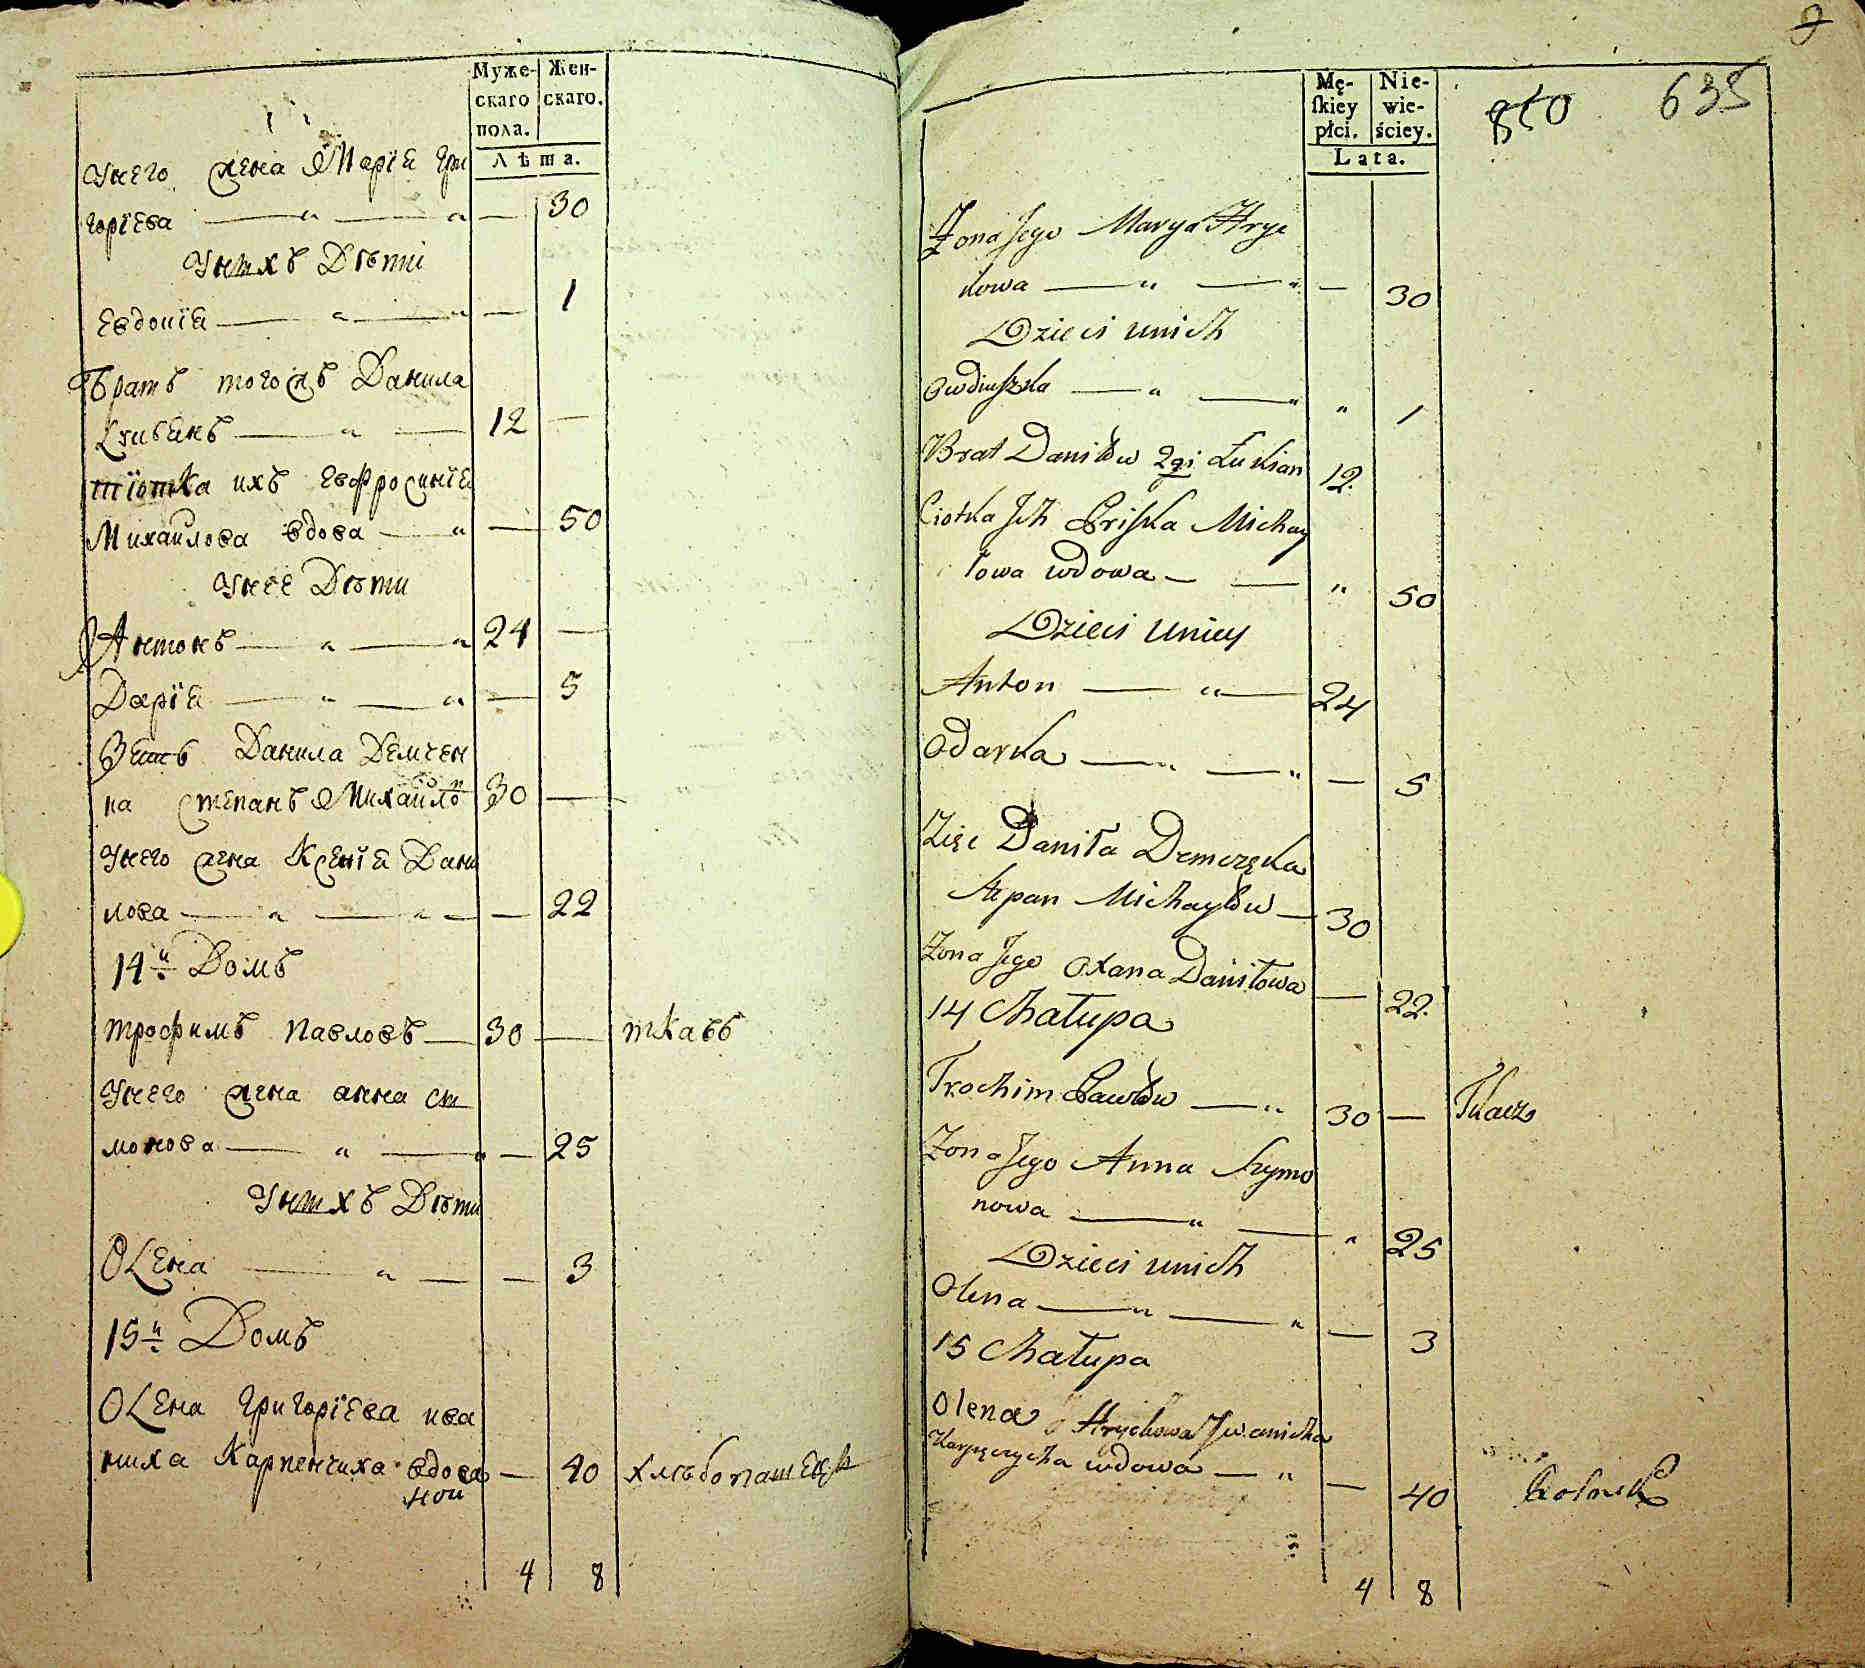 Муже-
скаго
пола.
Жен-
скаго.
Лѣта.
Унего жена Марїя Гри
горїева — „ — „ — 30
Унихъ Дѣти
Евдокїя — „ — „ — 1
Братъ тогожъ Данила
Лукїянъ — „ — 12 —
тїотка ихъ Евфросинїя
Михайлова вдова — „ — 50
Унее Дѣти
Антонъ — „ — „ 24 —
Дарїя — „ — „ — 5
Зять Данила Демчен
ка Степанъ Михайловъ 30 —
Унего жена Ксенїя Дани
лова — „ — „ — — 22
14й Домъ
трофимъ Павловъ — 30 — ткачъ
Унего жена анна си
монова — „ — „ — 25
Унихъ Дѣти
Олена — „ — — 3
15й Домъ
Олена Григорїева ива
ниха Карпенчиха вдова — 40 хлѣбопашецъ
4 8
9
Mę-
ſkiey
płci.
Nie-
wie-
ściey.
Lata.
810 635
Żona Jego Marya Hryc
kowa — „ — „ — 30
Dzieci unich
Owdiuszka — „ — „ „ 1
Brat Daniłów 2gi Łukian 12.
Ciotka Ich Priska Michay
łowa wdowa — — „ 50
Dzieci Uniey
Anton — „ — 24
Odarka — „ — „ — 5
Zięć Daniła Demczęka
Stepan Michayłów — 30
Żona Jego Oxana Daniłowa — 22.
14 Chałupa
Trochim Pawłów — „ 30 — Tkacz
Żona Jego Anna Szymo
nowa — „ — „ 25
Dzieci unich
Olena — „ — „ — 3
15 Chałupa
Olena Hryckowa Iwanicha
Karpęczycha wdowa — „ — 40 Rolnik
4 8